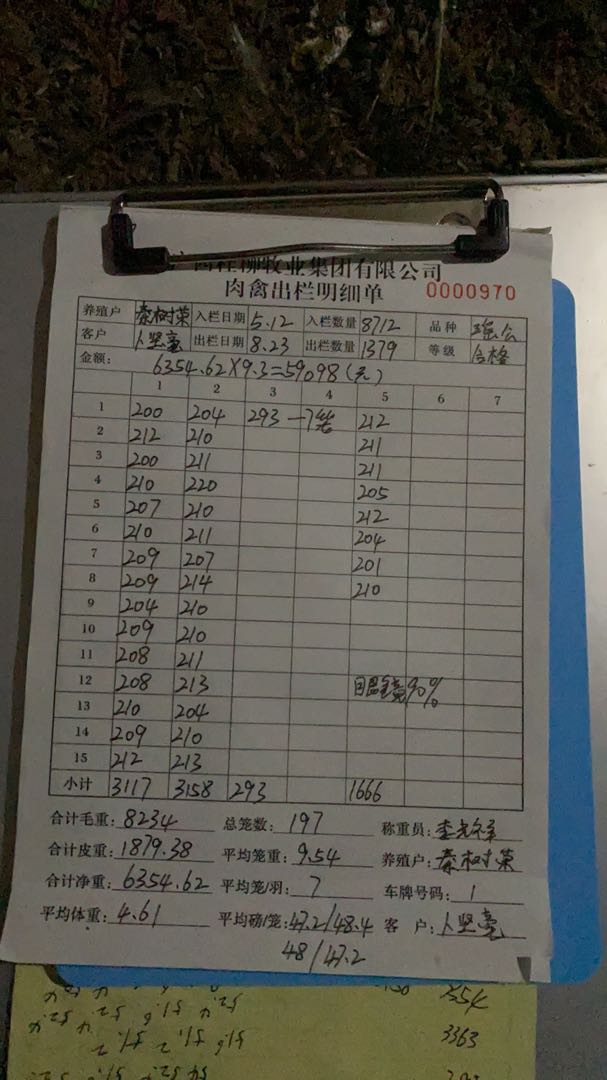 牧业集团有限公司
肉禽出栏明细单 0000970
养殖户 秦树荣 入栏日期 5.12 入栏数量 8712 品种 瑶公
客户 卜坚亮 出栏日期 8.23 出栏数量 1379 等级 合格
金额: 6354.62×9.3=59098(元)
1 2 3 4 5 6 7
1 200 204 293 一7笼 212
2 212 210 211
3 200 211 211
4 210 220 205
5 207 210 212
6 210 211 204
7 209 207 201
8 209 214 210
9 204 210
10 209 210
11 208 211
12 208 213 眼镜90%
13 210 204
14 209 210
15 212 213
小计 3117 3158 293 1666
合计毛重: 8234 总笼数: 197 称重员:
合计皮重: 1879.38 平均笼重: 9.54 养殖户: 秦树荣
合计净重: 6354.62 平均笼/羽: 7 车牌号码: 1
平均体重: 4.61 平均磅/笼: 47.2/48.4 客 户: 卜坚亮
48/47.2
3363